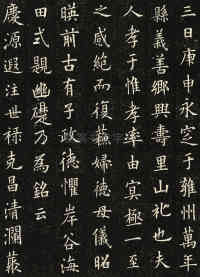 三日庚申永窆于雍州萬年
縣義善鄉興壽里山礼也夫
人孝于惟孝率由冥極一至
之感絶而復蘇婦德母儀昭
暎前古有子政德懼岸谷海
田式題幽礎乃為銘云
慶源遐注世禄克昌清瀾